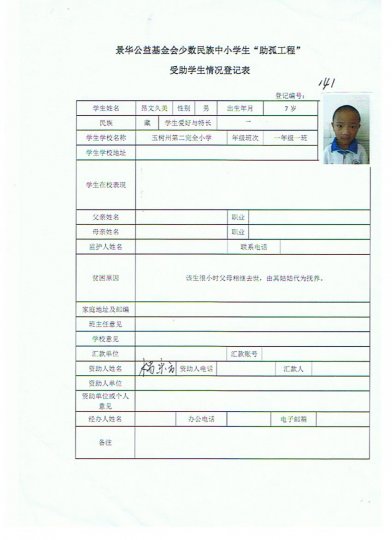 景华公益基金会少数民族中小学生“助孤工程”
受助学生情况登记表
登记编号: 141
学生姓名 昂文久美 性别 男 出生年月 7岁
民族 藏 学生爱好与特长 一
学生学校名称 玉树州第二完全小学 年级班次 一年级一班
学生学校地址
学生在校表现
父亲姓名 职业
母亲姓名 职业
监护人姓名 联系电话
贫困原因 该生很小时父母相继去世，由其姑姑代为抚养。
家庭地址及邮编
班主任意见
学校意见
汇款单位 汇款账号
资助人姓名 资助人电话 汇款人
资助人单位
资助单位或个人
意见
经办人姓名 办公电话 电子邮箱
备注